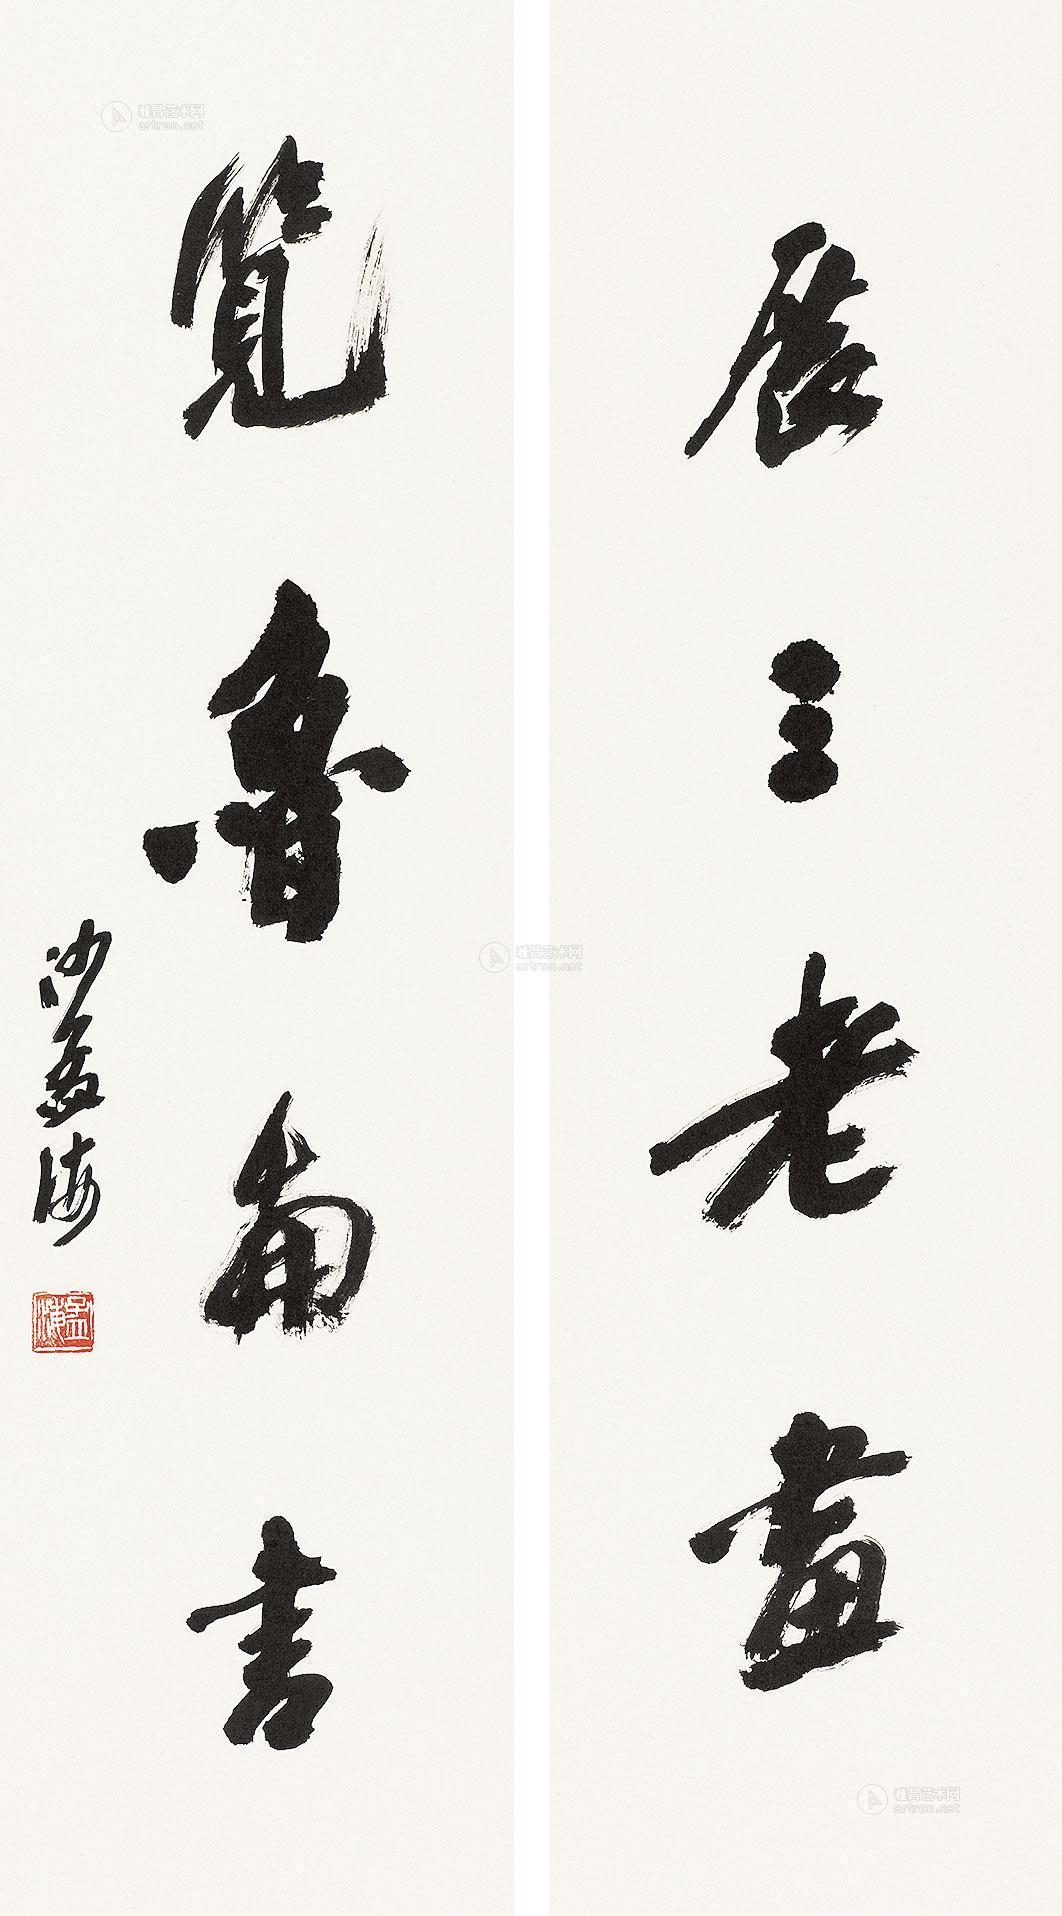 展三老畫
覽魯南書
沙孟海
孟海
雅昌艺术网
artron.net
雅昌艺术网
artron.net
雅昌艺术网
artron.net